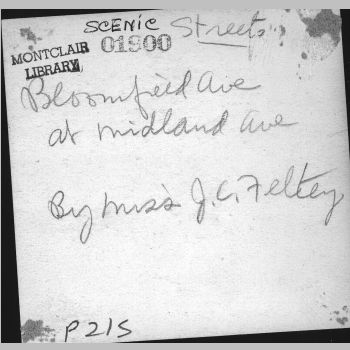 SCENIC Streets
MONTCLAIR LIBRARY 01900
Bloomfield Ave
at midland Ave
By Miss J.C. Feltey
P215